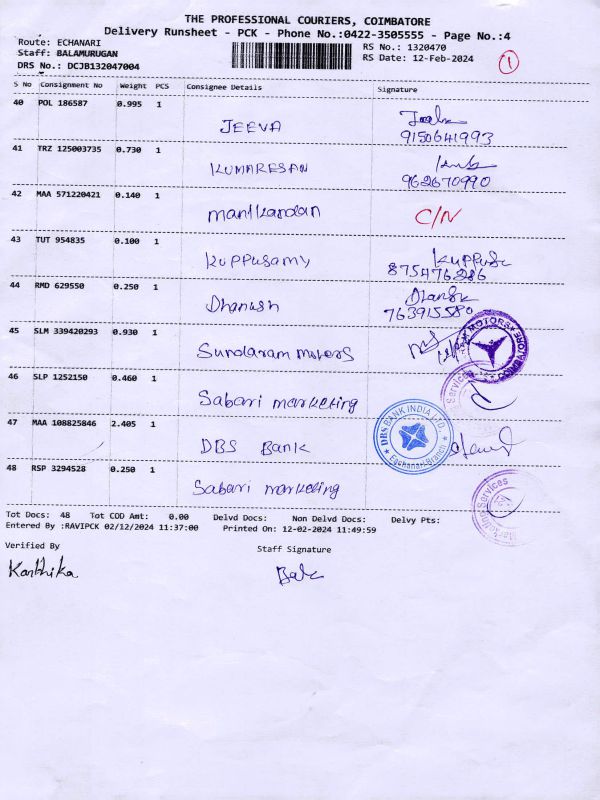 THE PROFESSIONAL COURIERS, COIMBATORE
Delivery Runsheet - PCK - Phone No.:0422-3505555 - Page No.:4
Route: ECHANARI RS No.: 1320470
Staff: BALAMURUGAN RS Date: 12-Feb-2024
DRS No.: DCJB132047004 1
S No Consignment No Weight PCS Consignee Details Signature
40 POL 186587 0.995 1
JEEVA 9150641993
41 TRZ 125003735 0.730 1
KUMARESAN 962670990
42 MAA 571220421 0.140 1
manikandan C/N
43 TUT 954835 0.100 1
KUPPUSAMY 875476286
44 RMD 629550 0.250 1
Dhanush 763915580
45 SLM 339420293 0.930 1
Sundaram motors MOTORS COIMBATORE
46 SLP 1252150 0.460 1
Sabari marketing Services
47 MAA 108825846 2.405 1
DBS Bank DBS BANK INDIA LTD. Eachanari Branch
48 RSP 3294528 0.250 1
Sabari marketing Marketing Services
Tot Docs: 48 Tot COD Amt: 0.00 Delvd Docs: Non Delvd Docs: Delvy Pts:
Entered By :RAVIPCK 02/12/2024 11:37:00 Printed On: 12-02-2024 11:49:59
Verified By Staff Signature
Karthika Bala